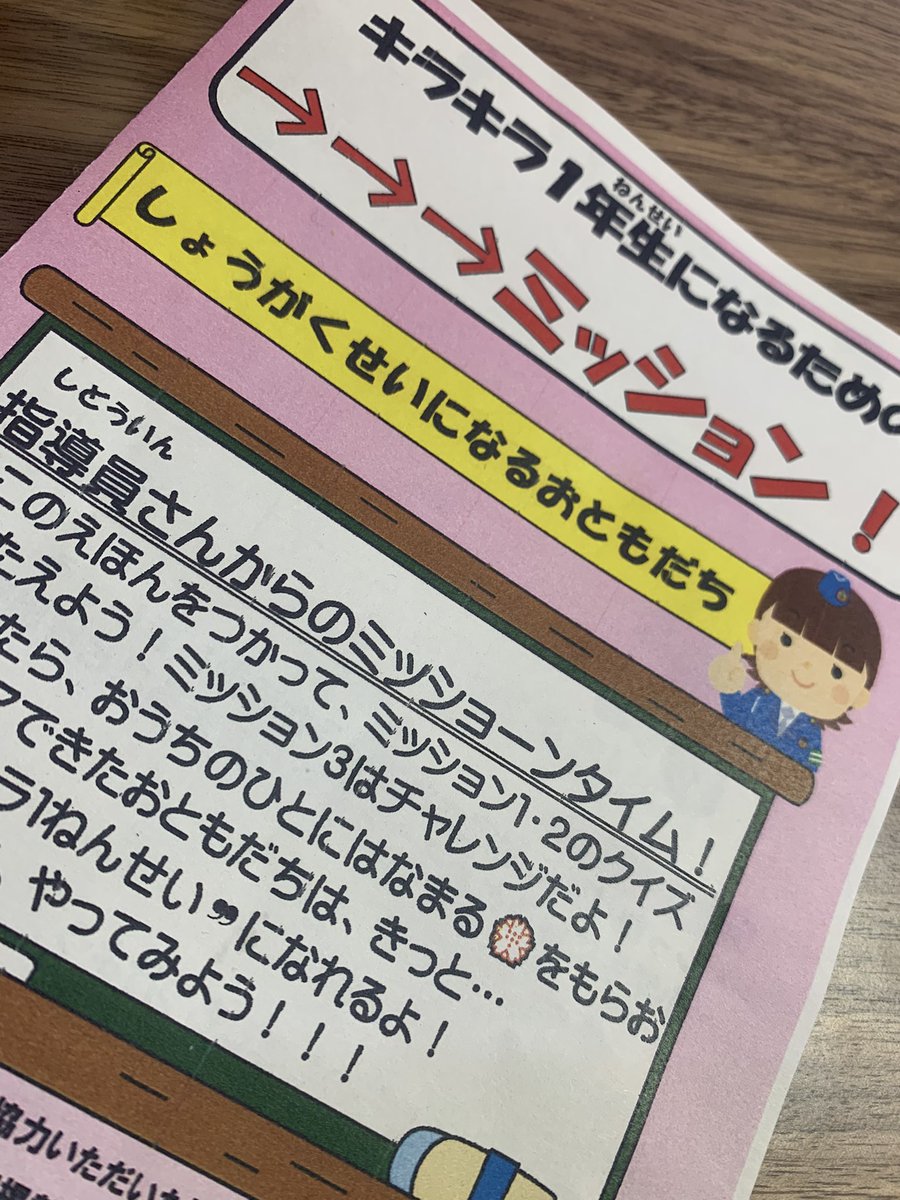 キラキラ1年生になるための
ねんせい
→→→ミッション！
しょうがくせいになるおともだち
しどういん
指導員さんからのミッショーンタイム！
このえほんをつかって、ミッション1・2のクイズ
たえよう！ミッション3はチャレンジだよ！
たら、おうちのひとにはなまる をもらお
できたおともだちは、きっと…
ラ1ねんせい”になれるよ！
やってみよう！！！
協力いただいた